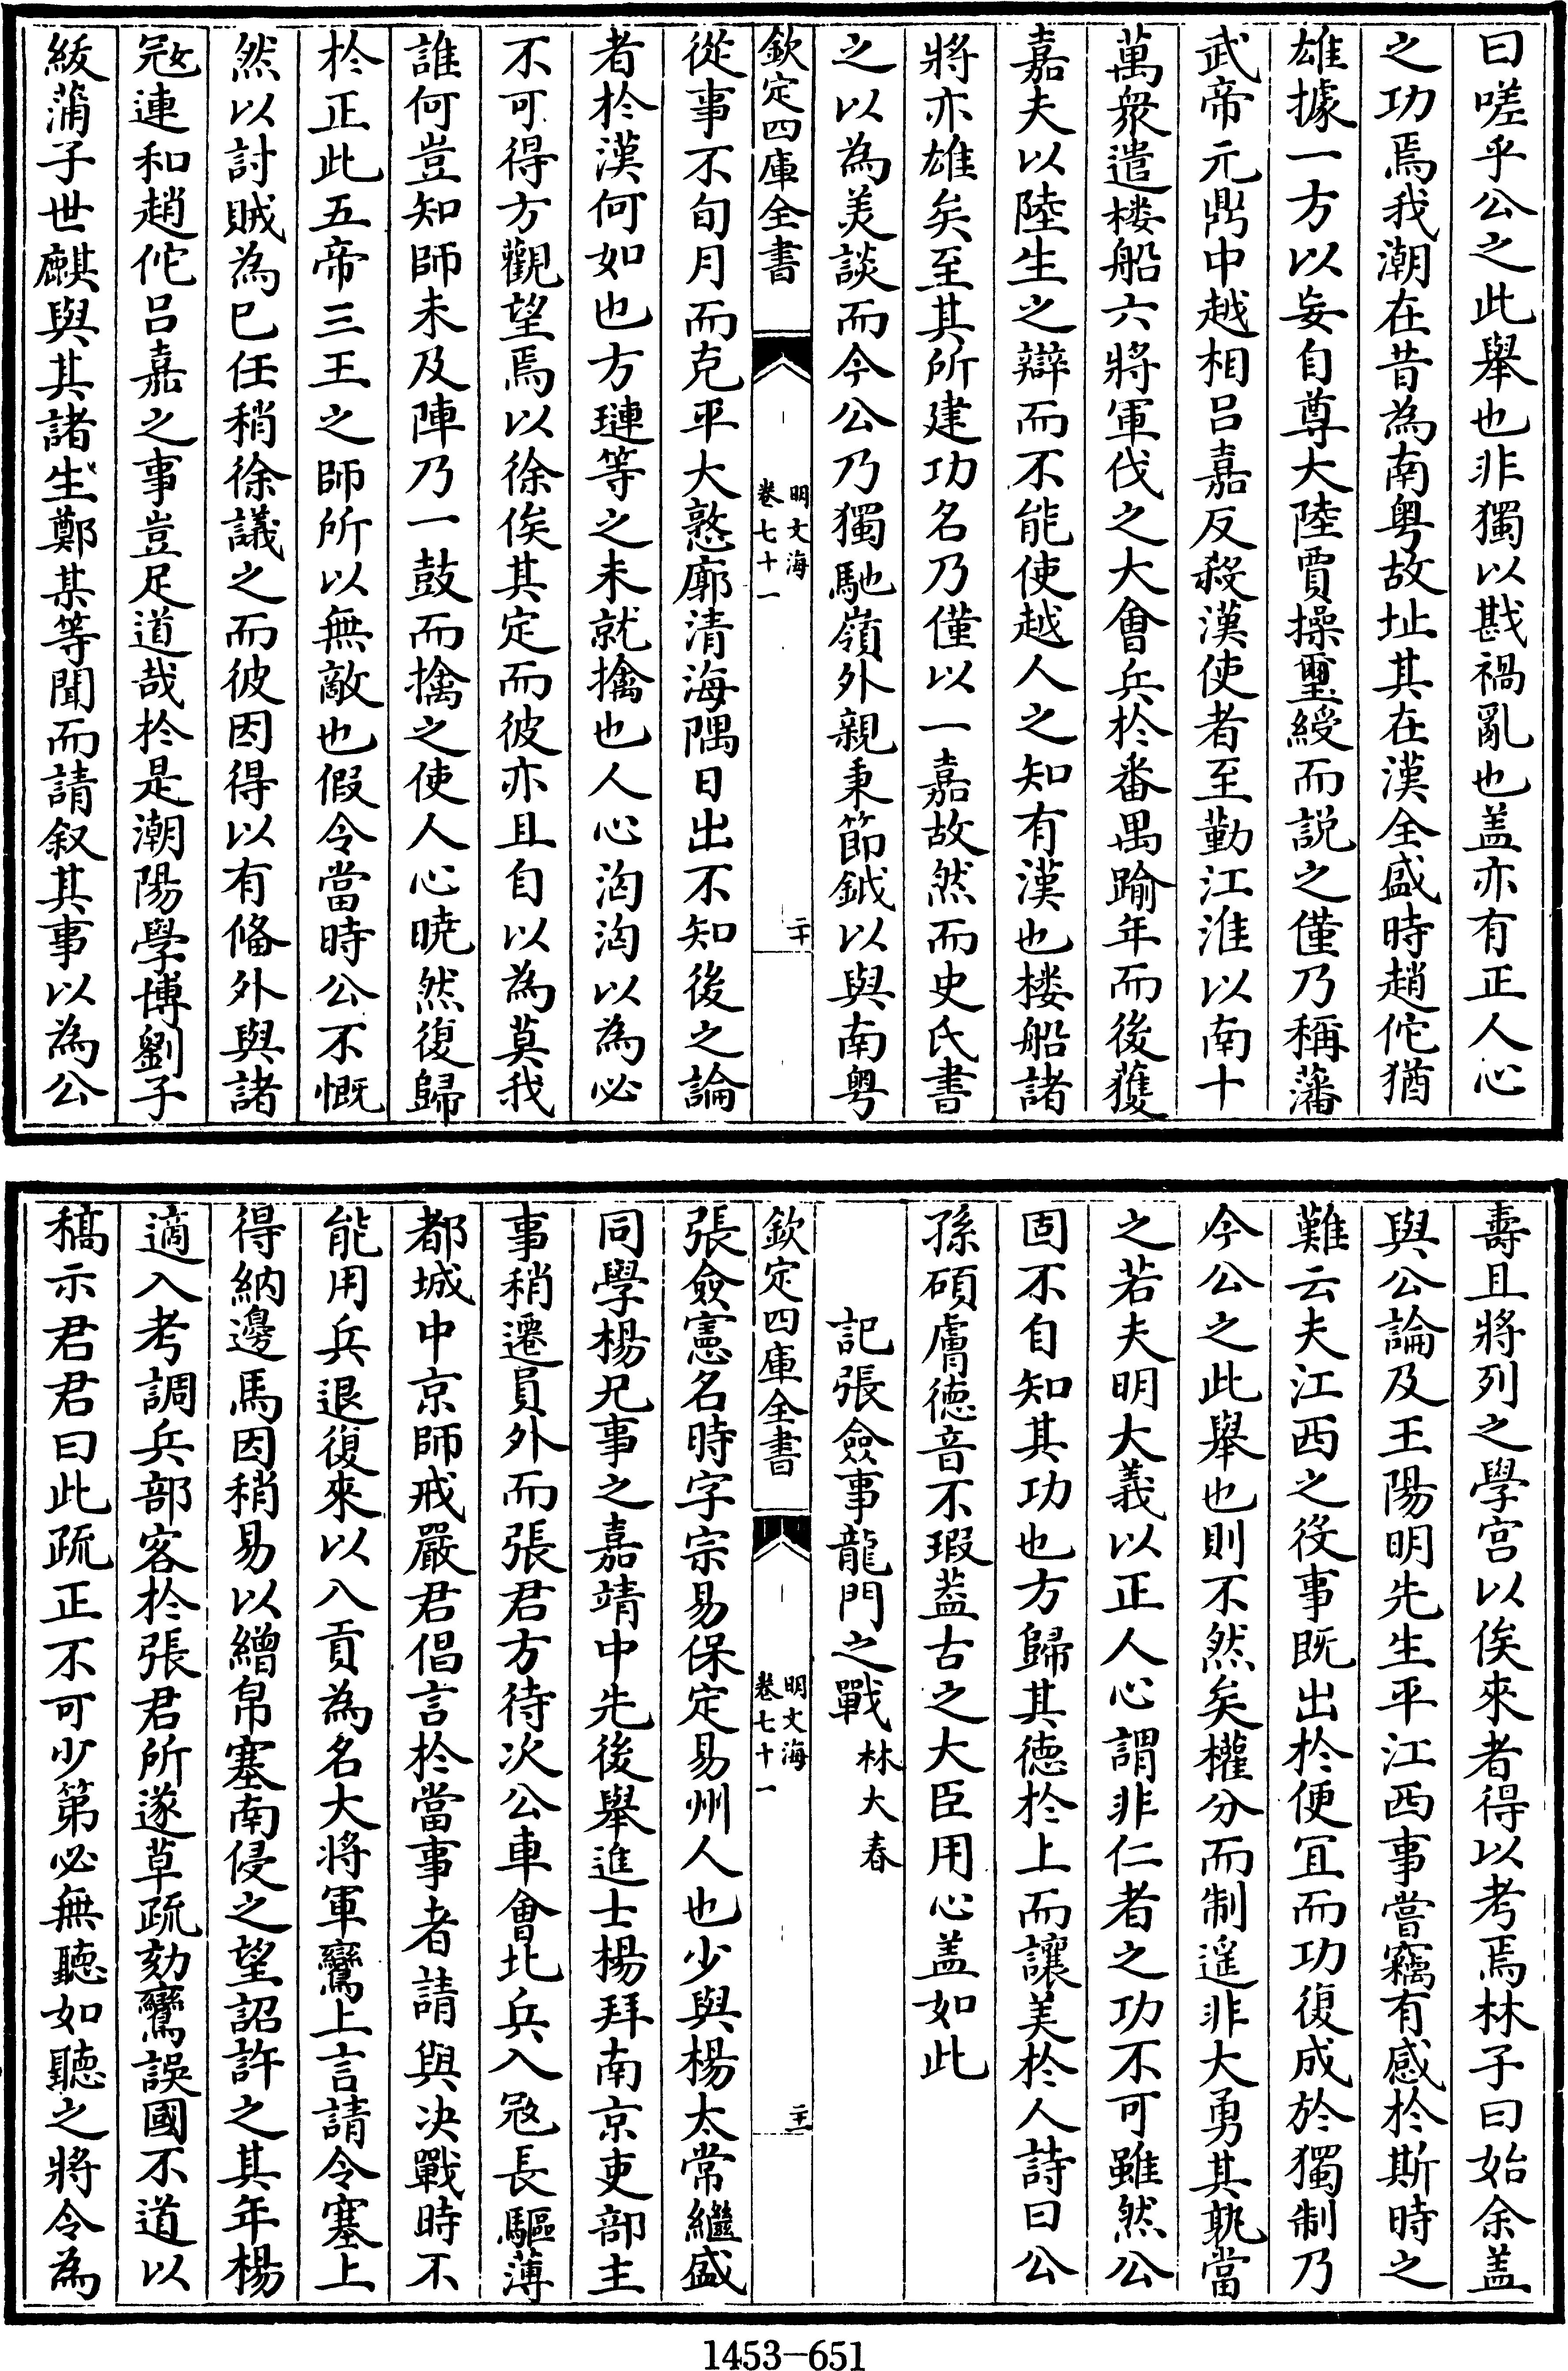 曰嗟乎公之此舉也非獨以戡禍亂也盖亦有正人心
之功焉我潮在昔為南粤故址其在漢全盛時趙佗猶
雄據一方以妄自尊大陸賈操璽綬而説之僅乃稱藩
武帝元鼎中越相吕嘉反殺漢使者至勤江淮以南十
萬衆遣楼船六將軍伐之大會兵於番禺踰年而後獲
嘉夫以陸生之辯而不能使越人之知有漢也楼船諸
將亦雄矣至其所建功名乃僅以一嘉故然而史氏書
之以為美談而今公乃獨馳嶺外親秉節鉞以與南粤
欽定四庫全書
明文海
卷七十一
二十
從事不旬月而克平大憝廓清海隅日出不知後之論
者於漢何如也方璉等之未就擒也人心洶洶以為必
不可得方觀望焉以徐俟其定而彼亦且自以為莫我
誰何豈知師未及陣乃一鼓而擒之使人心曉然復歸
於正此五帝三王之師所以無敵也假令當時公不慨
然以討賊為已任稍徐議之而彼因得以有俻外與諸
冦連和趙佗吕嘉之事豈足道哉於是潮陽學博劉子
綏蒲子世麒與其諸生鄭某等聞而請叙其事以為公
壽且將列之學宫以俟來者得以考焉林子曰始余盖
與公論及王陽明先生平江西事嘗竊有感於斯時之
難云夫江西之役事既出於便宜而功復成於獨制乃
今公之此舉也則不然矣權分而制遥非大勇其孰當
之若夫明大義以正人心謂非仁者之功不可雖然公
固不自知其功也方歸其德於上而讓美於人詩曰公
孫碩膚德音不瑕葢古之大臣用心盖如此
記張僉事龍門之戰 林大春
欽定四庫全書
明文海
卷七十一
二十一
張僉憲名時字宗易保定易州人也少與楊太常繼盛
同學楊兄事之嘉靖中先後舉進士楊拜南京吏部主
事稍遷員外而張君方待次公車會北兵入冦長驅薄
都城中京師戒嚴君倡言於當事者請與决戰時不
能用兵退復來以入貢為名大將軍鸞上言請令塞上
得納邊馬因稍易以繒帛塞南侵之望詔許之其年楊
適入考調兵部客於張君所遂草疏劾鸞誤國不道以
稿示君君曰此疏正不可少第必無聽如聽之將令為
1453-651